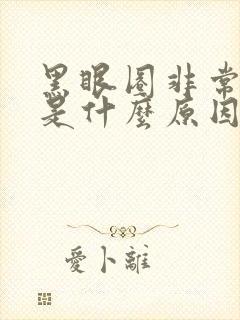 黑眼圈非常
是什麼原因
愛卜離